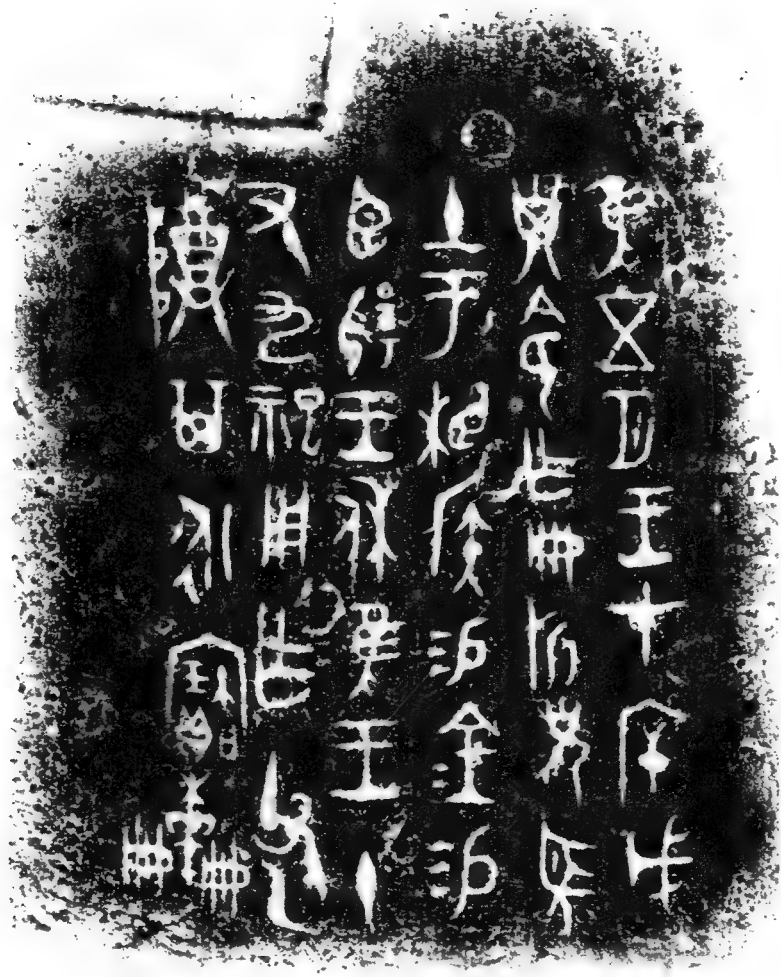 隹五月王才厈戊
子令乍冊折兄望
土于相侯易金易
臣揚王休隹王十
又九祀用乍父乙
尊其永寶木羊冊冊